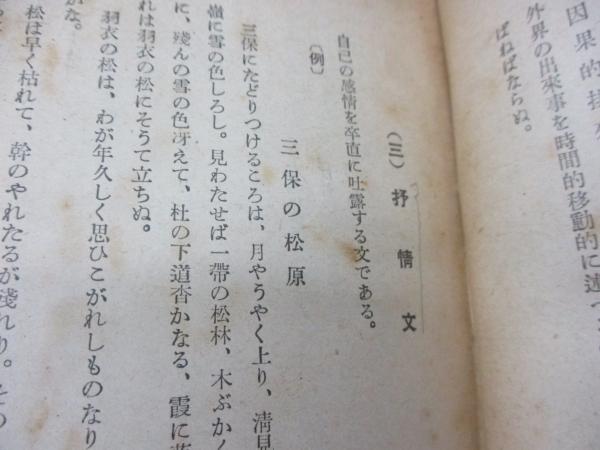 因果的
外界の出來事を時間的移動的に述
ばねばならぬ。
（三）抒情文
自己の感情を卒直に吐露する文である。
〔例〕
三保の松原
三保にたどりつけるころは、月やうやく上り、淸見
嶺に雪の色しろし。見わたせば一帶の松林、木ぶかく
に、殘んの雪の色冴えて、杜の下道杳かなる、霞に
れは羽衣の松にそうて立ちぬ。
羽衣の松は、わが年久しく思ひこがれしものなり
かな。
松は早く枯れて、幹のやれたるが殘れり。その